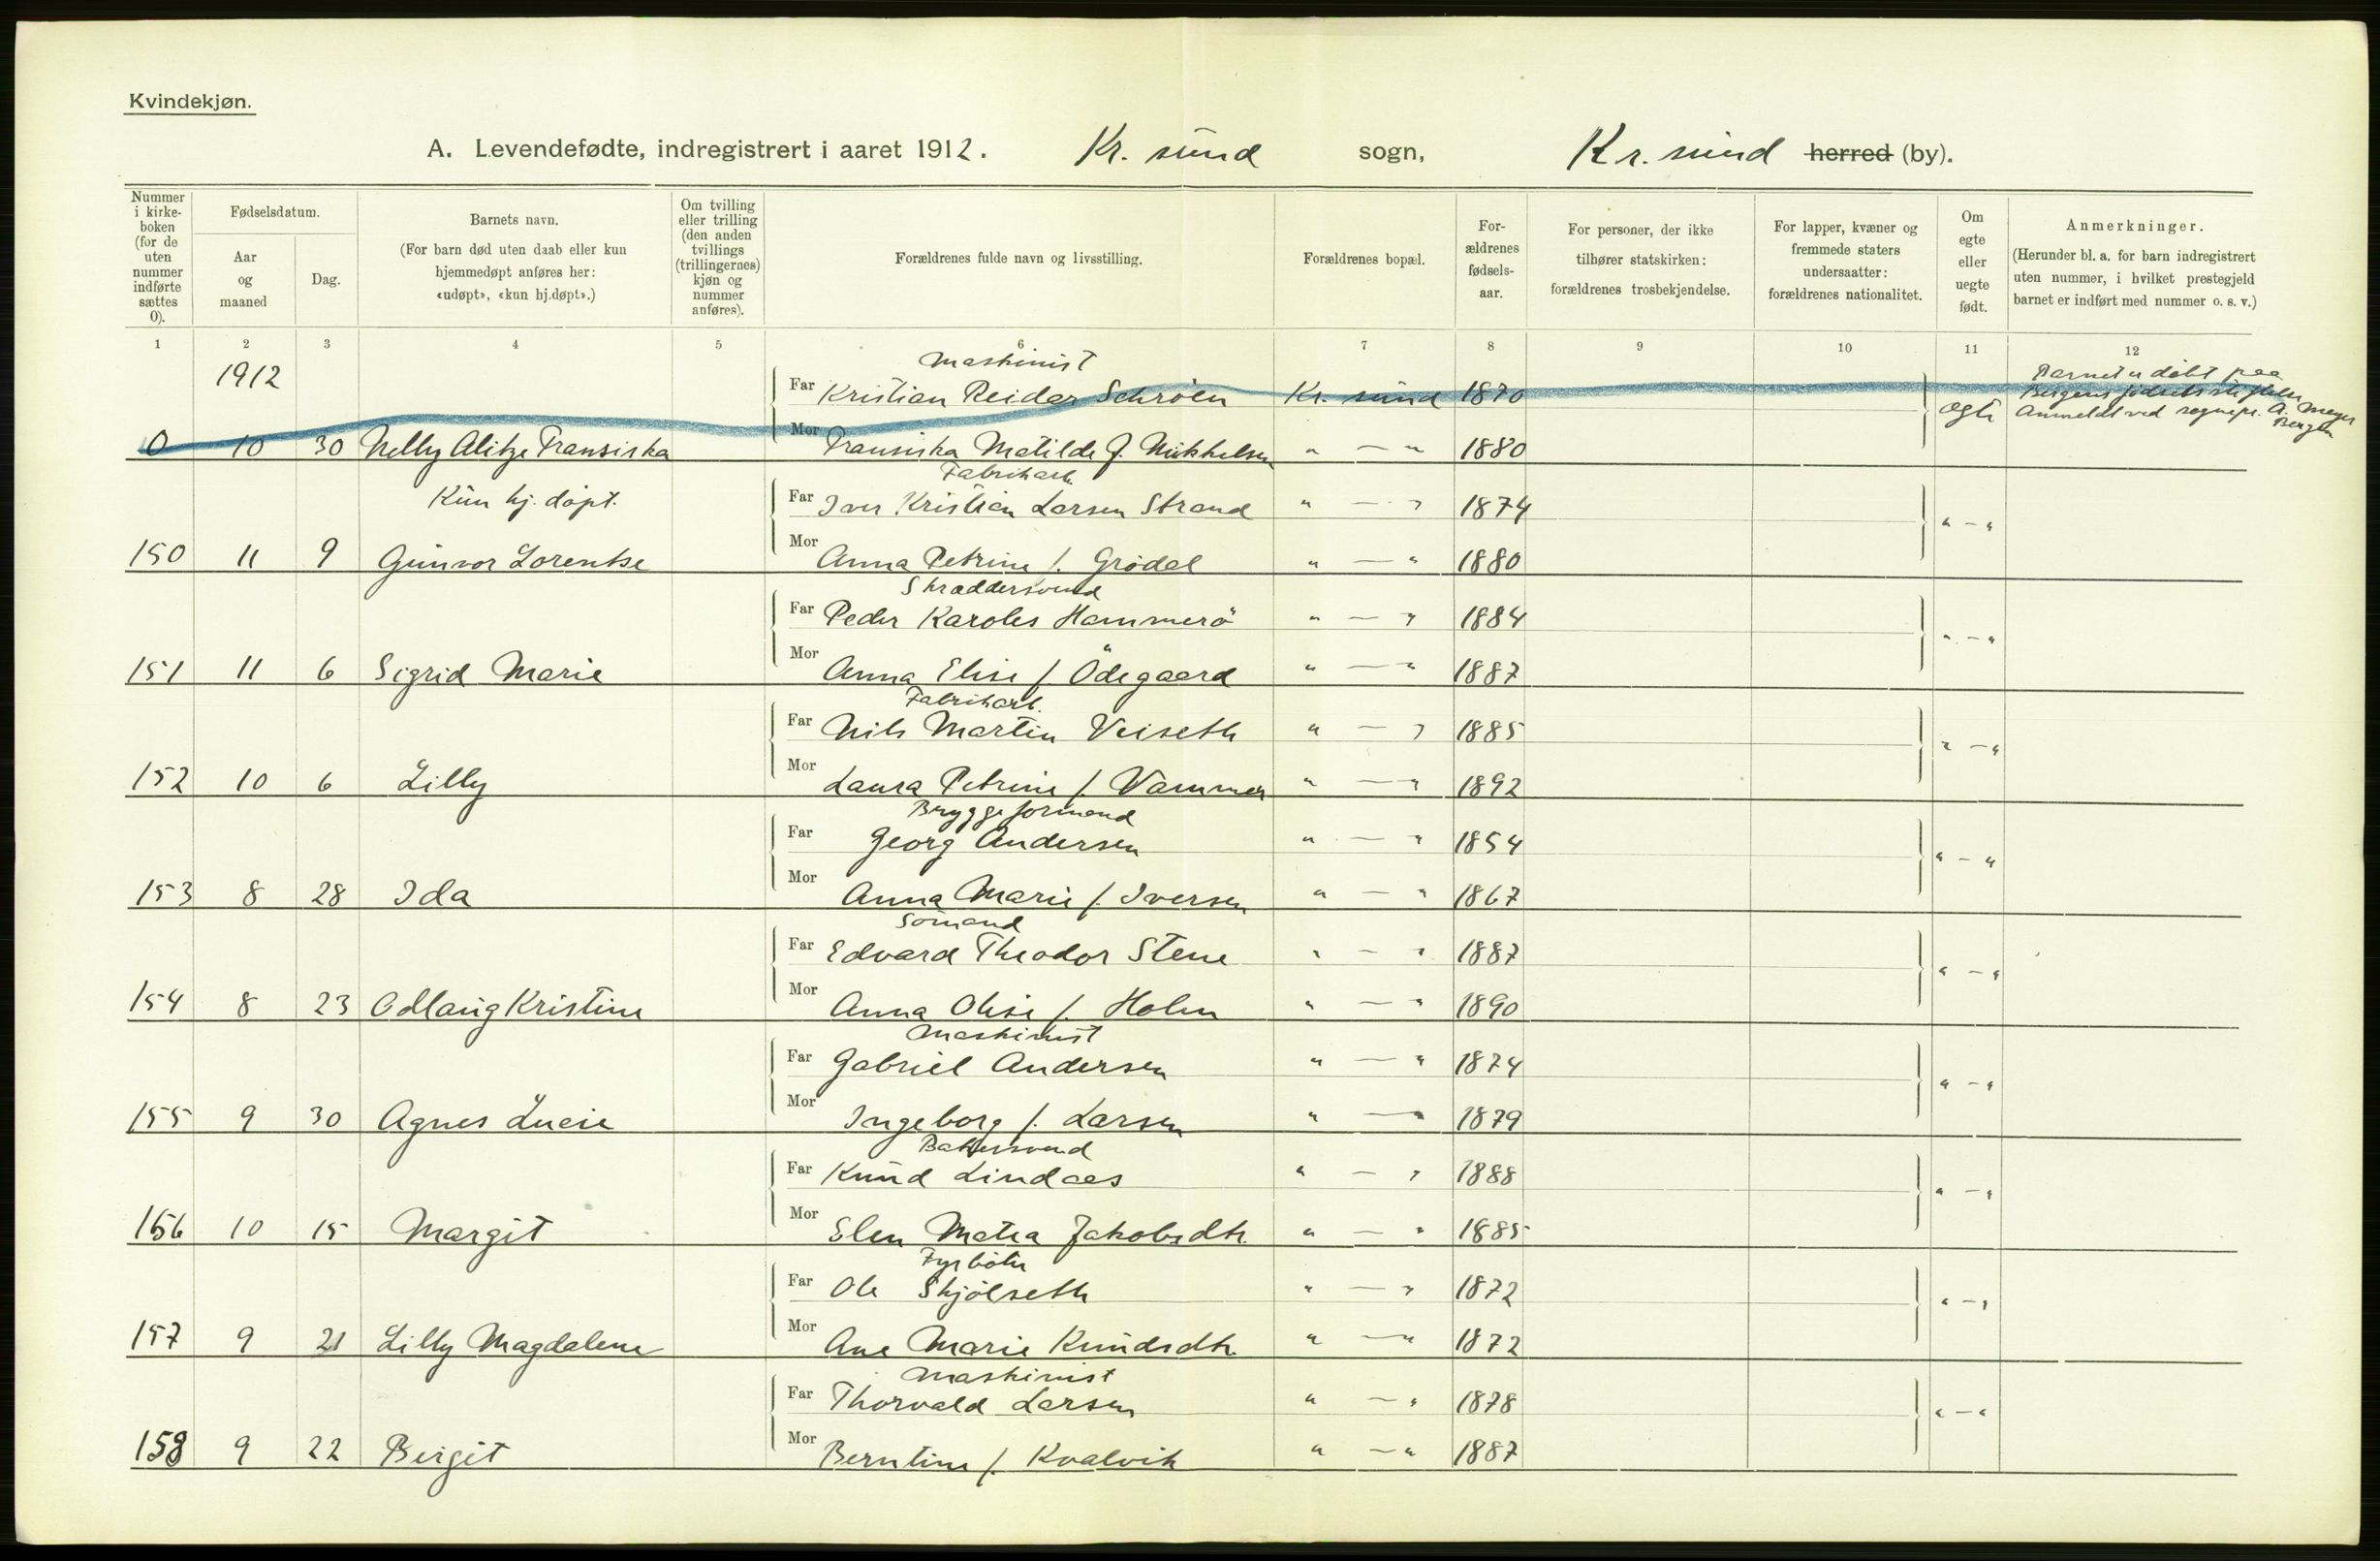 Kvindekjøn.
A. Levendefødte, indregistrert i aaret 1912. Kr. sund sogn, Kr. sund herred (by).
Nummer i kirke-boken (for de uten nummer indførte sættes 0).
Fødselsdatum.
Aar og maaned
Dag.
Barnets navn.
(For barn død uten daab eller kun hjemmedøpt anføres her: «udøpt», «kun hj.døpt».)
Om tvilling eller trilling (den anden tvillings (trillingernes) kjøn og nummer anføres).
Forældrenes fulde navn og livsstilling.
Forældrenes bopæl.
For-ældrenes fødsels-aar.
For personer, der ikke tilhører statskirken: forældrenes trosbekjendelse.
For lapper, kvæner og fremmede staters undersaatter: forældrenes nationalitet.
Om egte eller uegte født.
Anmerkninger.
(Herunder bl. a. for barn indregistrert uten nummer, i hvilket prestegjeld barnet er indført med nummer o. s. v.)
1 2 3 4 5 6 7 8 9 10 11 12
1912
Maskinist
Far Kristian Reidar Schröen Kr. sund 1870
Barnet er døbt paa
Bergens fødselsstiftelse
Anmeldt ved sognepr. A. Meyer
Bergen
ogte
0 10 30 Nelly Alitze Fransiska Mor Fransiska Matilde f. Mikkelsen " — " 1880
Fabrikarb.
Kun hj. døpt. Far Iver Kristian Larsen Strand " — " 1874 " — "
150 11 9 Gunvor Lorentse Mor Anna Petrine f. Grødal " — " 1880
Skræddersvend
Far Peder Karoles Hammerö " — " 1884 " — "
151 11 6 Sigrid Marie Mor Anna Elise f. Ödegaard " — " 1887
Fabrikarb.
Far Nils Martin Veiseth " — " 1885 " — "
152 10 6 Lilly Mor Laura Petrine f. Vammer " — " 1892
Bryggeformand
Far Georg Andersen " — " 1854 " — "
153 8 28 Ida Mor Anna Marie f. Iversen " — " 1867
Sömand
Far Edvard Theodor Stene " — " 1887 " — "
154 8 23 Odlaug Kristine Mor Anna Olise f. Holm " — " 1890
Maskinist
Far Gabriel Andersen " — " 1874 " — "
155 9 30 Agnes Lucie Mor Ingeborg f. Larsen " — " 1879
Bakersvend
Far Knud Lindaas " — " 1888 " — "
156 10 15 Margit Mor Elen Matea Jakobsdtr. " — " 1885
Fyrböter
Far Ole Skjölseth " — " 1872 " — "
157 9 21 Lilly Magdalene Mor Ane Marie Knudsdtr. " — " 1872
Maskinist
Far Thorvald Larsen " — " 1878 " — "
158 9 22 Birgit Mor Berntine f. Kvalvik " — " 1887